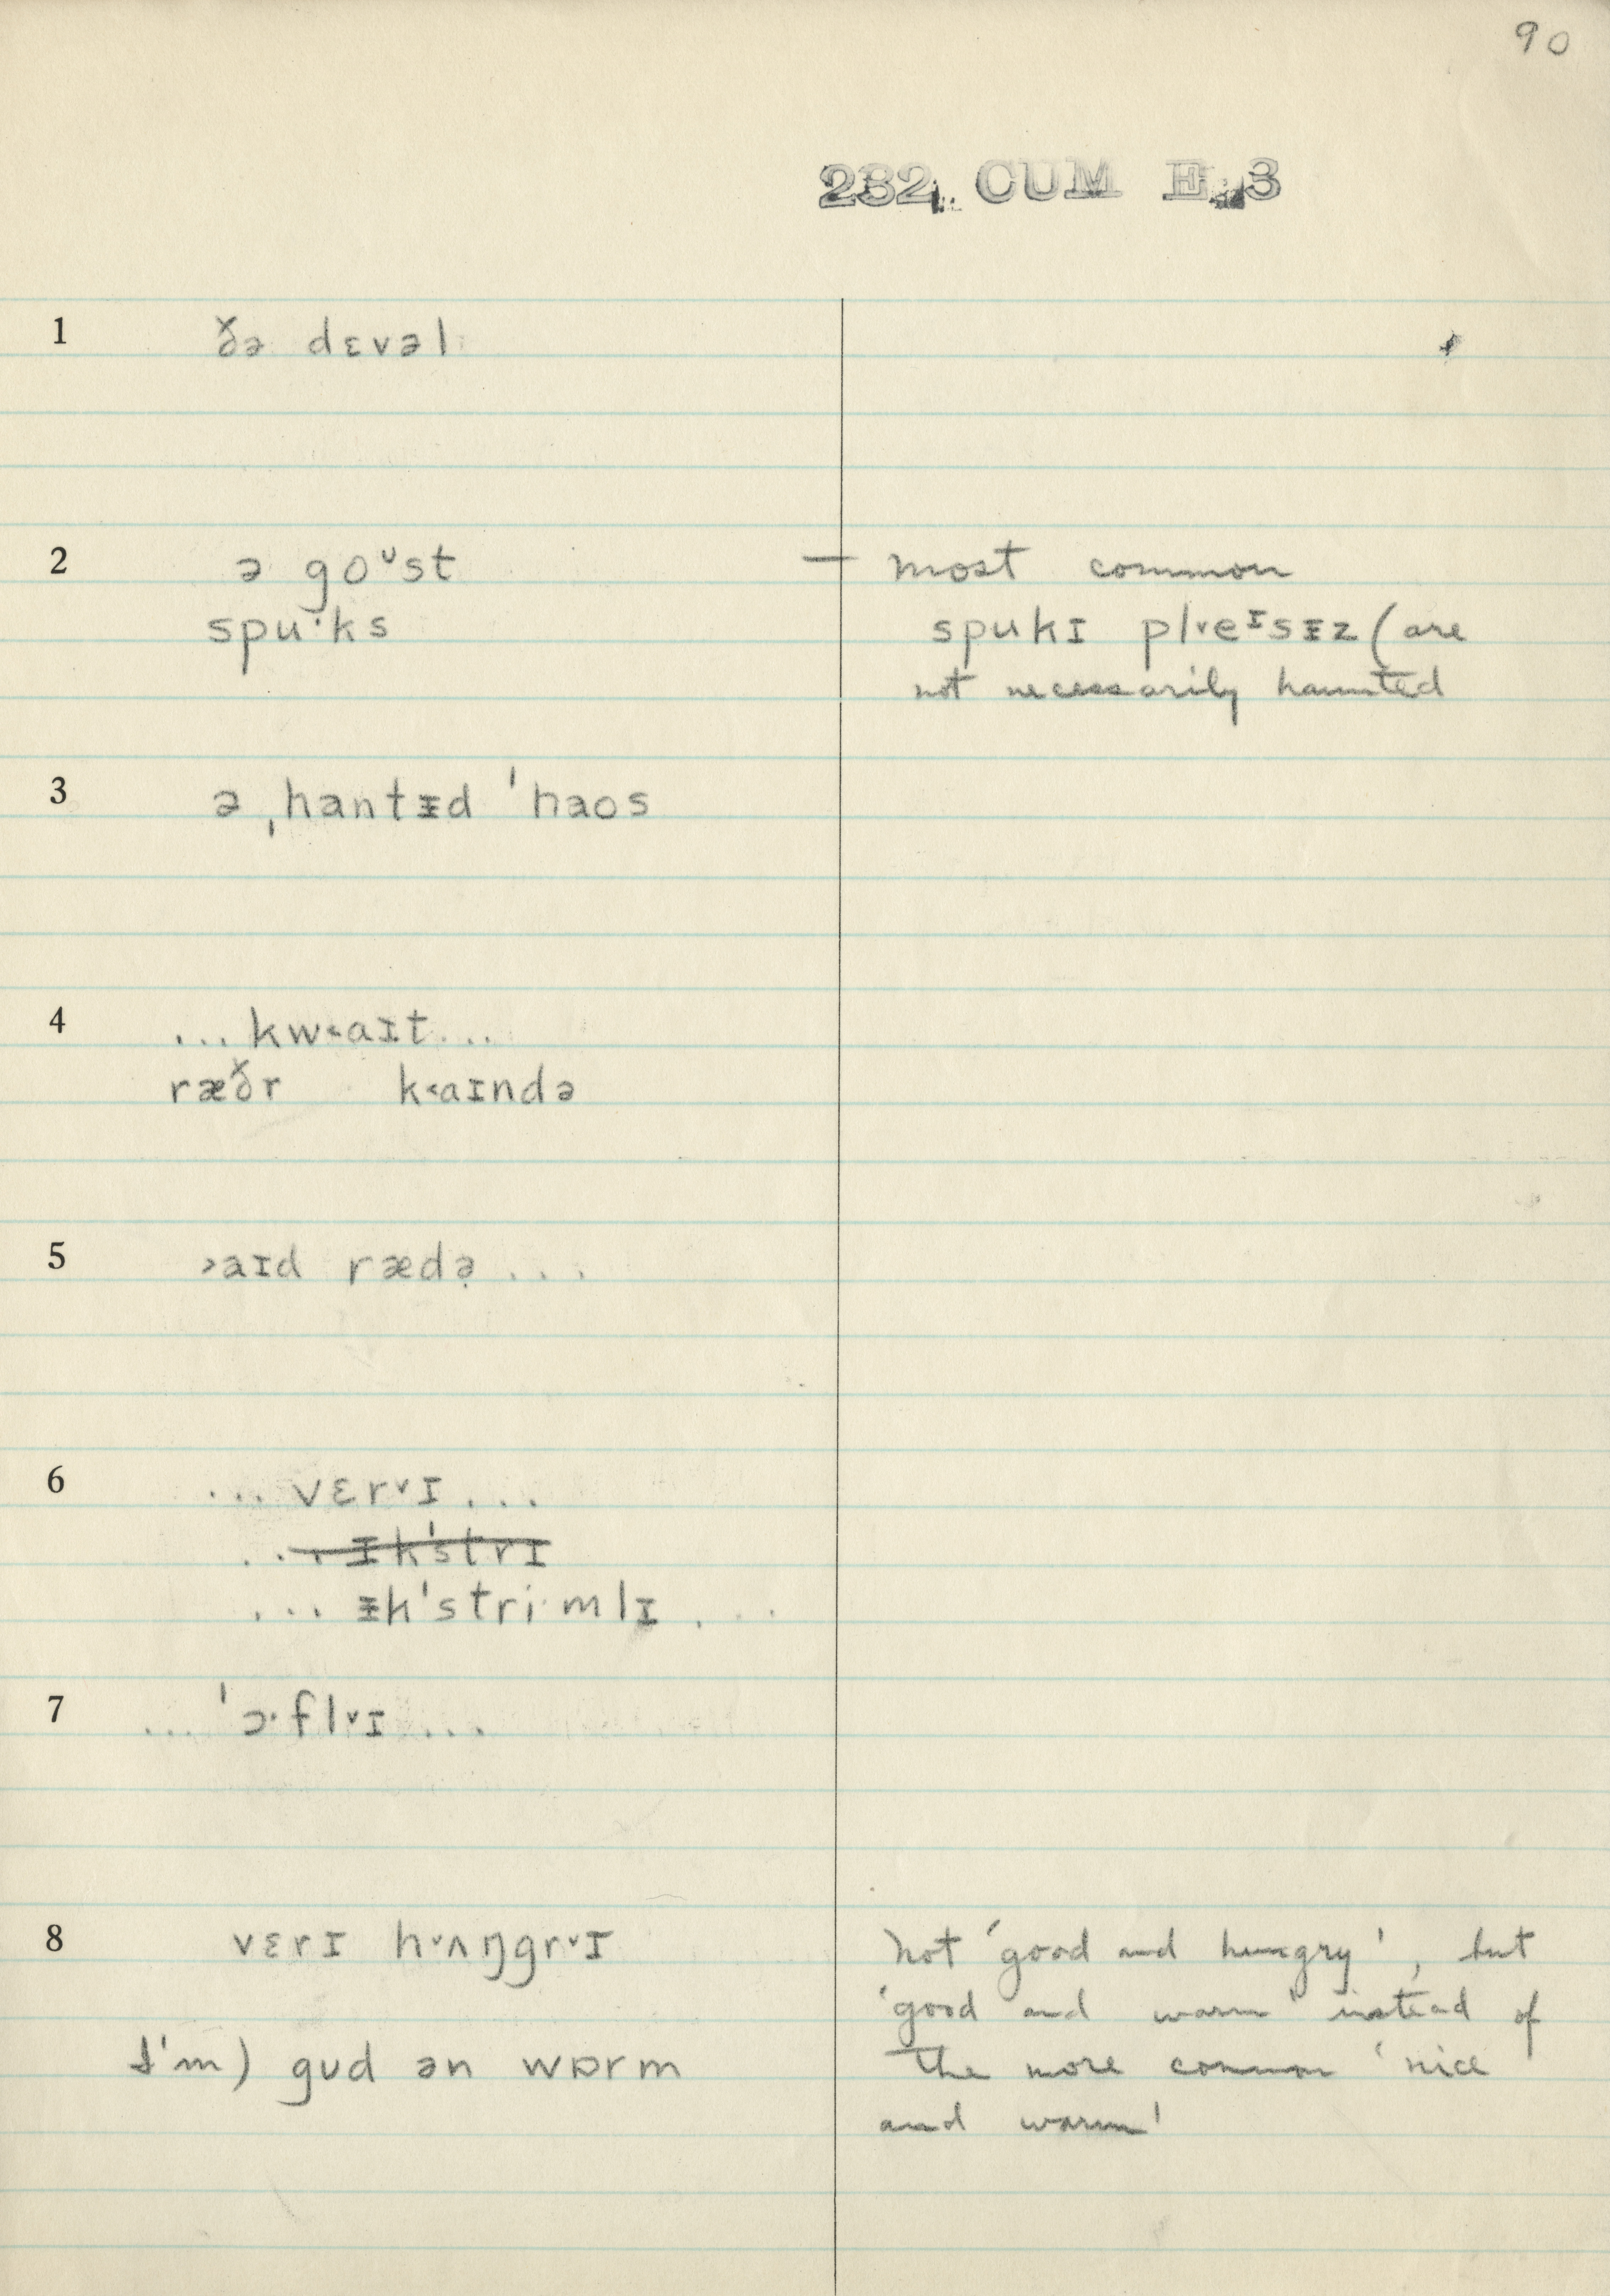 90
232. CUM E.3
1 ðə dɛvəl
2 ə goᶷst — most common
spu·ks spukɪ pl˅eᶦsᵻz (are
not necessarily haunted
3 ə ˌhantᵻd ˈhaos
4 ... kw˂aɪt ...
ræðr k˂aɪndə
5 ˃aɪd rædə̣ ...
6 ... vɛr˅ɪ ...
... ɪkˈstrɪ
... ᵻkˈstri·mlɪ ...
7 ... ˈɔ·fl˅ɪ ...
8 vɛrɪ h˅ʌŋgr˅ɪ not 'good and hungry', but
'good and warm' instead of
I'm) gud ən wɒrm the more common 'nice
and warm'